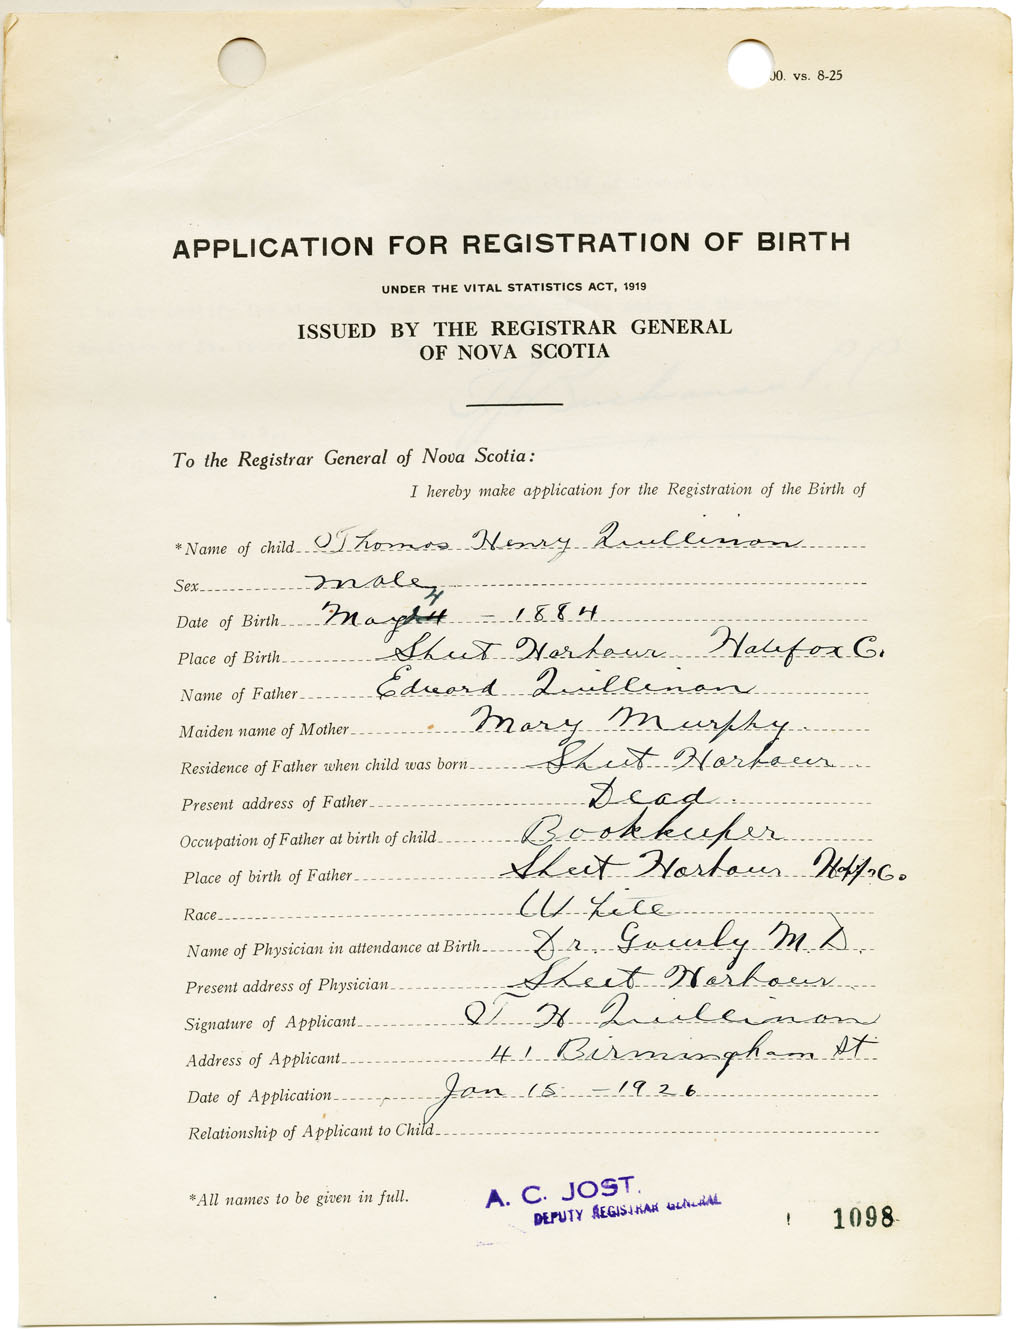 00. vs. 8-25
APPLICATION FOR REGISTRATION OF BIRTH
UNDER THE VITAL STATISTICS ACT, 1919
ISSUED BY THE REGISTRAR GENERAL
OF NOVA SCOTIA
To the Registrar General of Nova Scotia:
I hereby make application for the Registration of the Birth of
*Name of child Thomas Henry Quillinan
Sex male
Date of Birth May 4 - 1884
Place of Birth Sheet Harbour Halifax Co.
Name of Father Edward Quillinan
Maiden name of Mother Mary Murphy.
Residence of Father when child was born Sheet Harbour
Present address of Father Dead.
Occupation of Father at birth of child Bookkeeper
Place of birth of Father Sheet Harbour Hfx. Co.
Race White
Name of Physician in attendance at Birth Dr. M.D.
Present address of Physician Sheet Harbour
Signature of Applicant T H Quillinan
Address of Applicant 41 Birmingham St
Date of Application Jan 15 - 1926
Relationship of Applicant to Child
*All names to be given in full.
A. C. JOST.
DEPUTY REGISTRAR GENERAL
1098